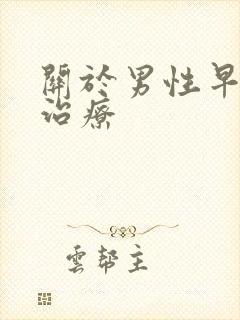 關於男性早
治療
雲幫主